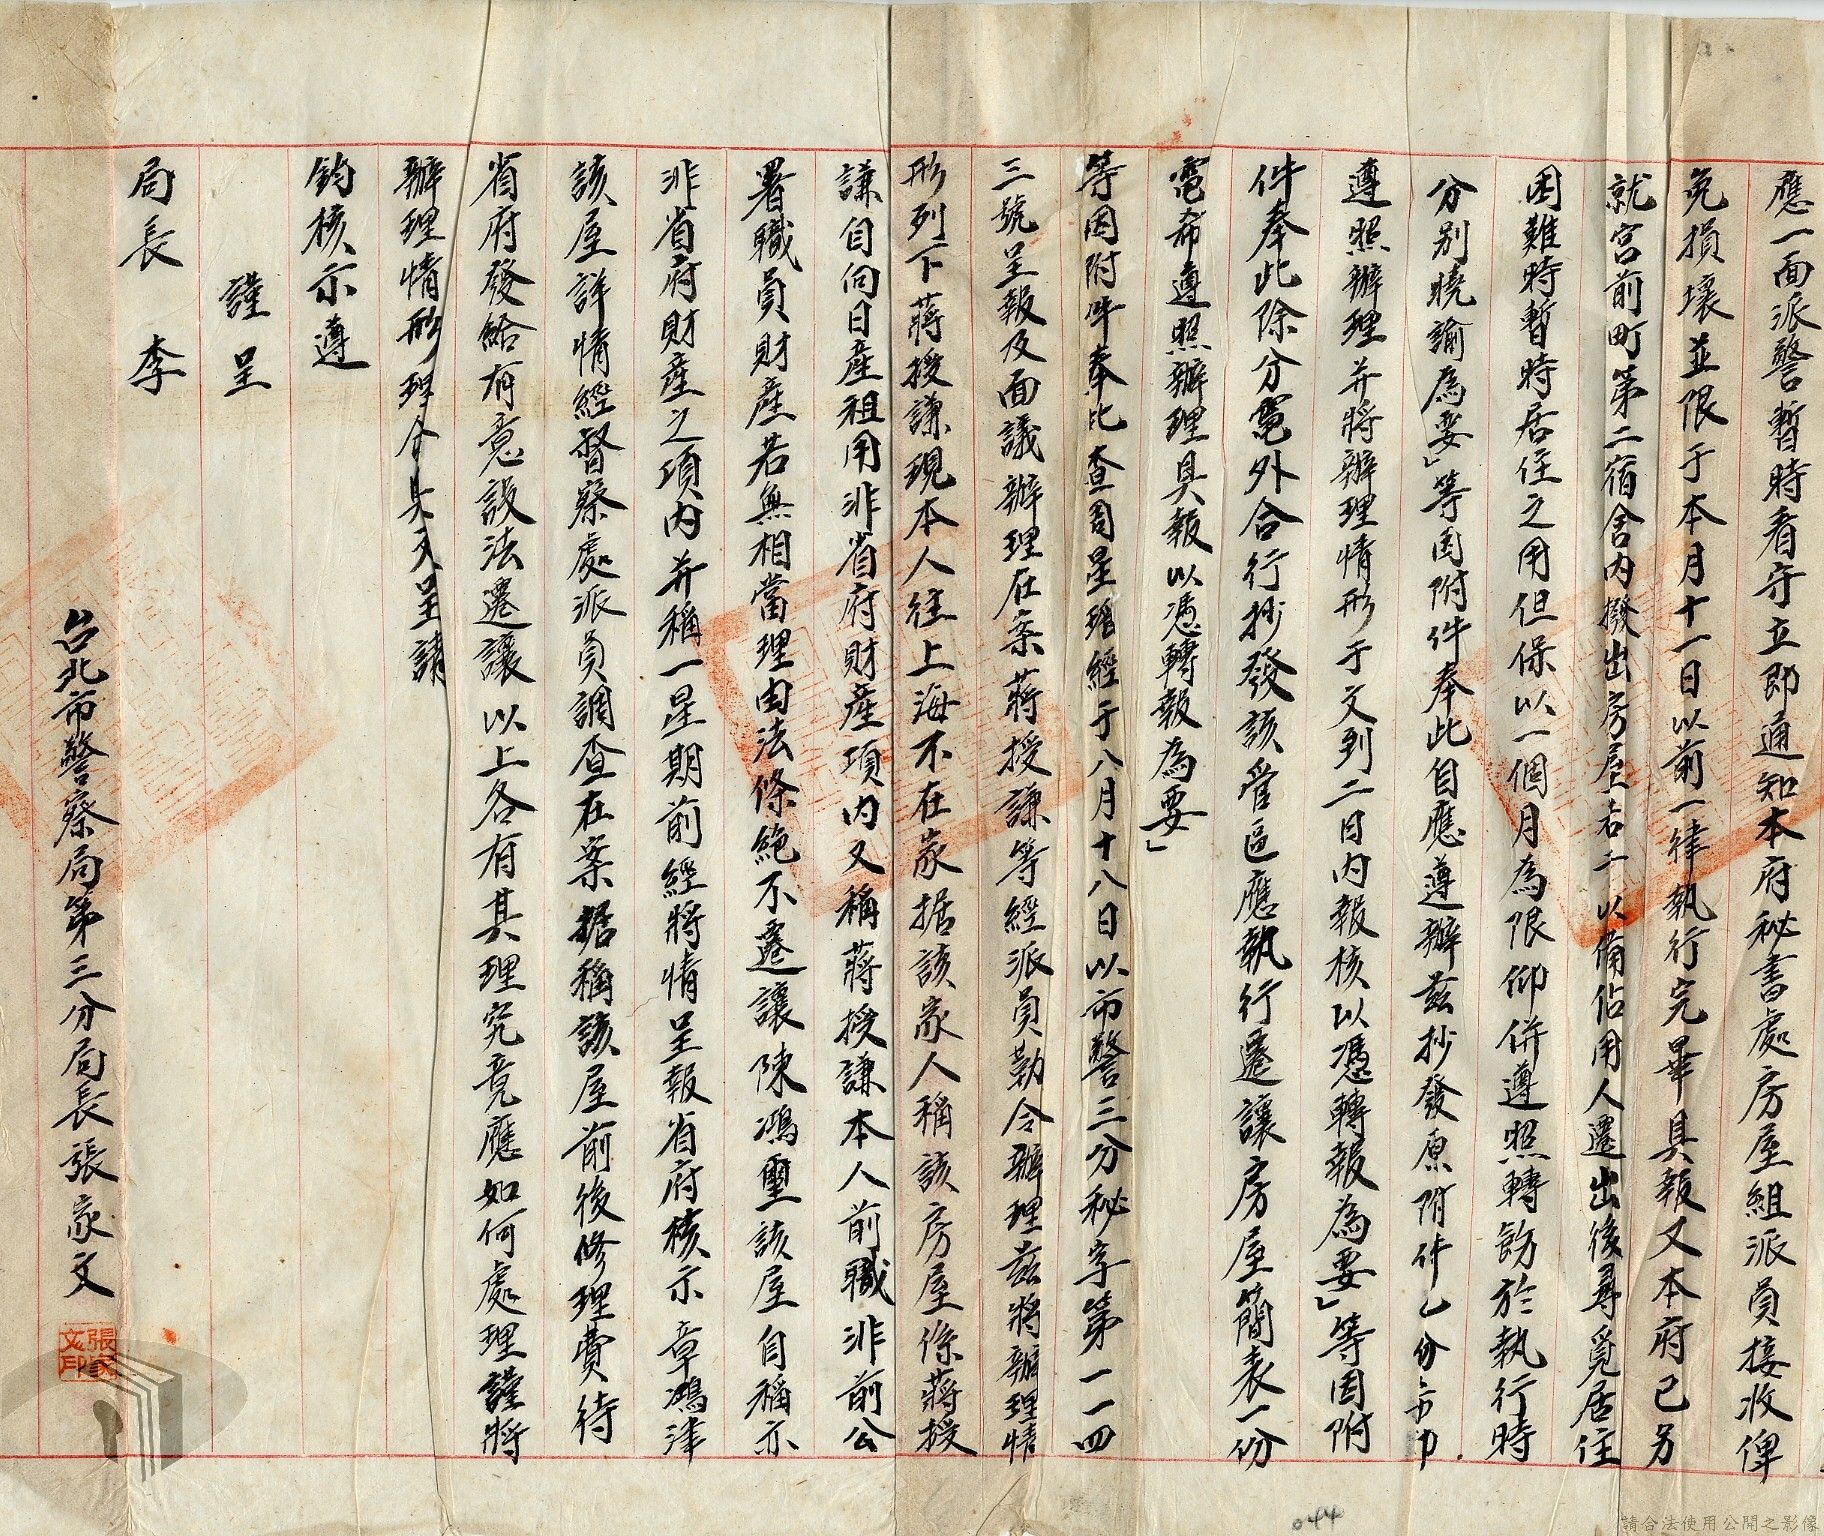 應一面派警暫時看守立即通知本府秘書處房屋組派員接收俾
免損壞並限于本月十一日以前一律執行完畢具報又本府已另
就宮前町第二宿舍內撥出房屋若干以備佔用人遷出後尋覓居住
困難時暫時居住之用但保以一個月為限仰併遵照轉飭於執行時
分別曉諭為要」等因附件奉此自應遵辦茲抄發原附件乙份
遵照辦理并將辦理情形于文到二日內報核以憑轉報為要」等因附
件奉此除分電外合行抄發該管區應執行遷讓房屋簡表一份
電希遵照辦理具報以憑轉報為要」
等因附件奉此查周星瑶經于八月十八日以市警三分秘字第一一四
三號呈報及面議辦理在案蔣授謙等經派員勒令辦理茲將辦理情
形列下蔣授謙現本人往上海不在家据該家人稱該房屋係蔣授
謙自向日產租用非省府財產項內又稱蔣授謙本人前職非前公
署職員財產若無相當理由法條絕不遷讓陳鴻璽該屋自稱亦
非省府財產之項內并稱一星期前經將情呈報省府核示章鴻津
該屋詳情經督察處派員調查在案据稱該屋前後修理費待
省府發給有意設法遷讓以上各有其理究竟應如何處理謹將
辦理情形理合具文呈請
鈞核示遵
謹呈
局長 李
台北市警察局第三分局長張家文
張家文印
044
請合法使用公開之影像